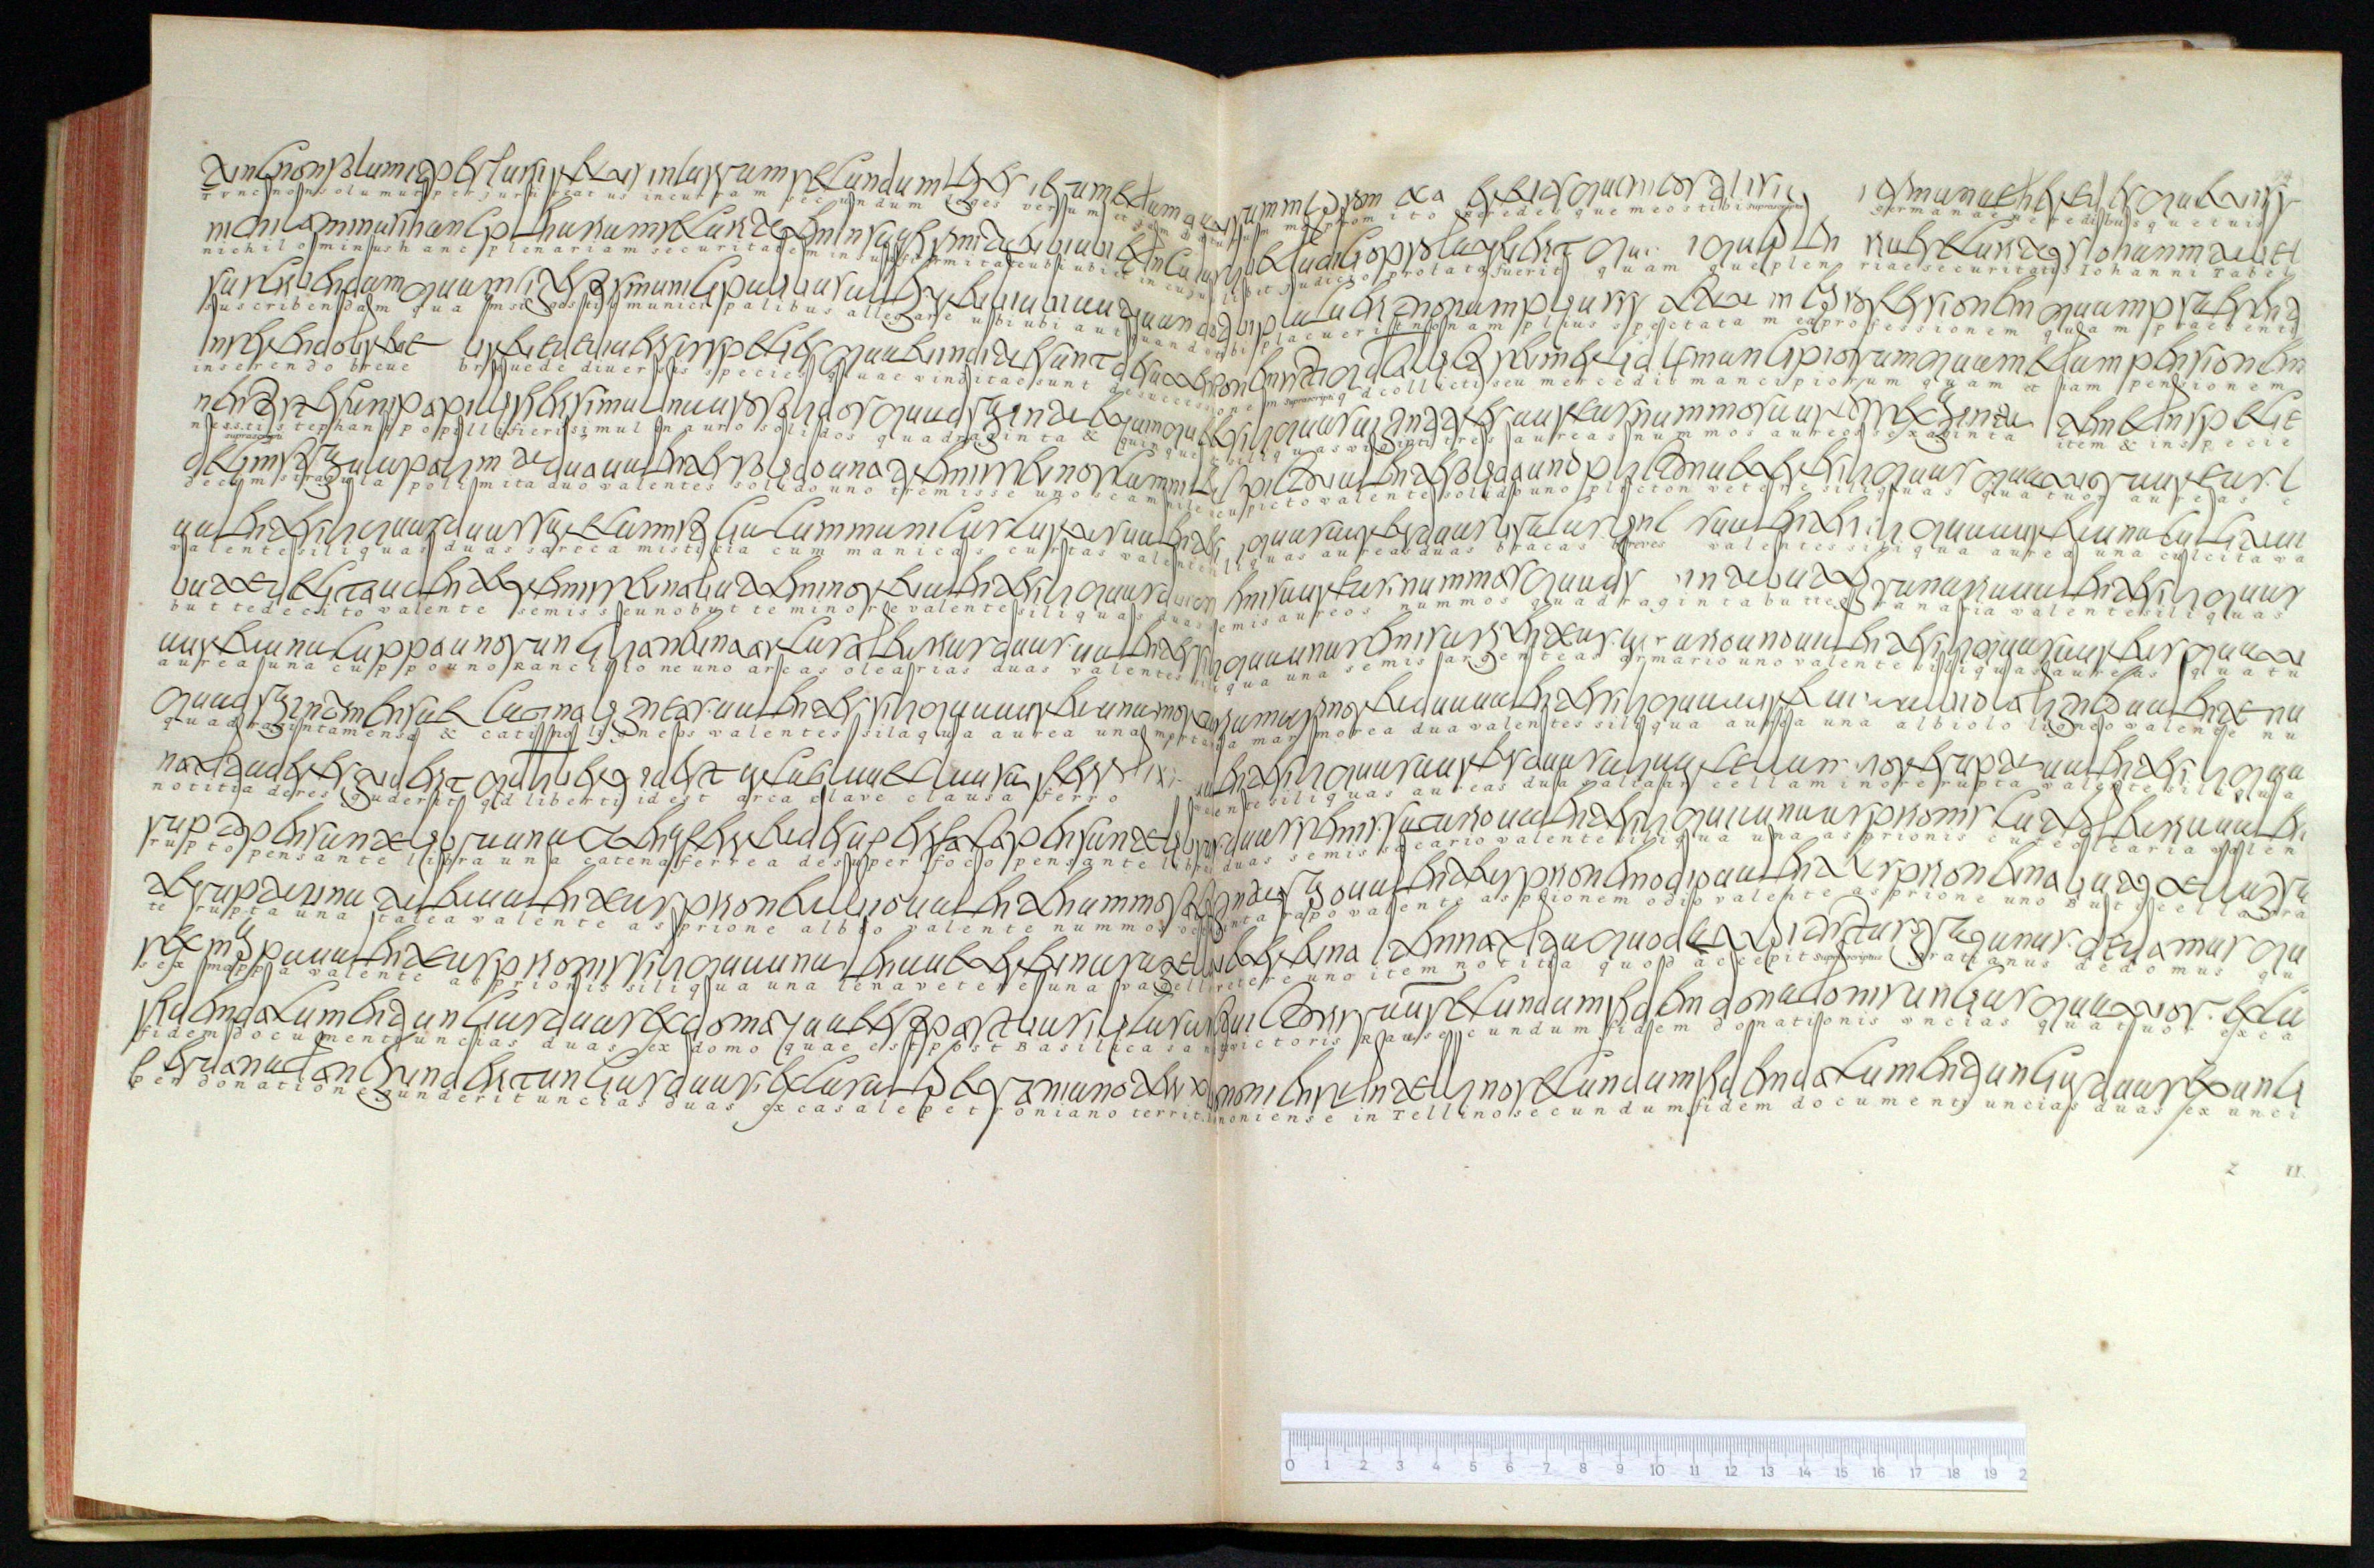 tunc non solum ut perjurii reatus incurram secundum leges verum etiam daturum me promitto heredesque meos tibi suprascripte germanae heredibusque tuis
nichilominus hanc plenariam securitatem in sua firmitate ubi ubi et in cujuslibet judicio prolata fuerit quamque plenariae securitatis Iohanni Tabel
suscribendam quamsi gestis municipalibus allegare ubi ubi aut quando tibi placuerit non amplius spectata mea professionem quam praesenti
inserendo breve brevede diversis species quae vinditae sunt de successionem suprascripti qd collicti seu mercedis mancipiorum quam et iam pensionem
nessti stephani popilli fieri simul in auro solidos quadraginta & quinque siliquas viginti tres aureas nummos aureos sexaginta item & in specie
suprascripti
decim stragula polimita duo valentes solido uno tremisse uno scamnile cum picto valente solido uno plicton vetere siliquas quatuor aureas c
valente siliquas duas sareca mistilia cum manicas curtas valente siliquas aureas duas bracas breves valentes siliqua aurea una culcita va
butte de cito valente semisse uno butte minore valente siliquas duas semis aureos nummos quadraginta butte granaria valente siliquas
aurea una cuppo uno rancilione uno arcas olearias duas valentes siliqua una semis argenteas armario uno valente siliquas aureas quatu
quadraginta mensa & catino ligneos valentes silaqua aurea una mortaria marmorea dua valentes siliqua aurea una albiolo ligneo valente nu
notitia de res quderit qd liberti id est arca clave clausa ferro valente siliquas aureas dua alia arcella minore rupta valente siliqua
rupto pensante libra una catena ferrea de super foco pensante libras duas semis sacario valente siliqua una asprionis cute olearia valen
te rupta una talea valente asprione albio valente nummos octuginta rapo valente asprionem odio valente asprione uno butticella gra
sex mappa valente asprionis siliqua una lena vetere una vacelli vetere uno item notitia quod accepit suprascriptus Gratianus de domus qu
fidem documenti uncias duas ex domo quae est post Basilica sancti victoris Rause secundum fidem donationis uncias quatuor ex ca
per donatione cunderit uncias duas ex casale petroniano territ. noniense in Tellino secundum fidem documenti uncias duas ex unci
Z II.
0 1 2 3 4 5 6 7 8 9 10 11 12 13 14 15 16 17 18 19 2